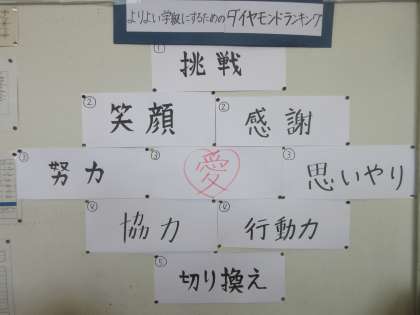 よりよい学級にするためのダイヤモンドランキング
① 挑戦
② 笑顔 ② 感謝
③ 努力 ③ 愛 ③ 思いやり
④ 協力 ④ 行動力
⑤ 切り換え